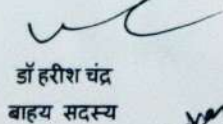 डॉ हरीश चंद्र
बाहय सदस्य